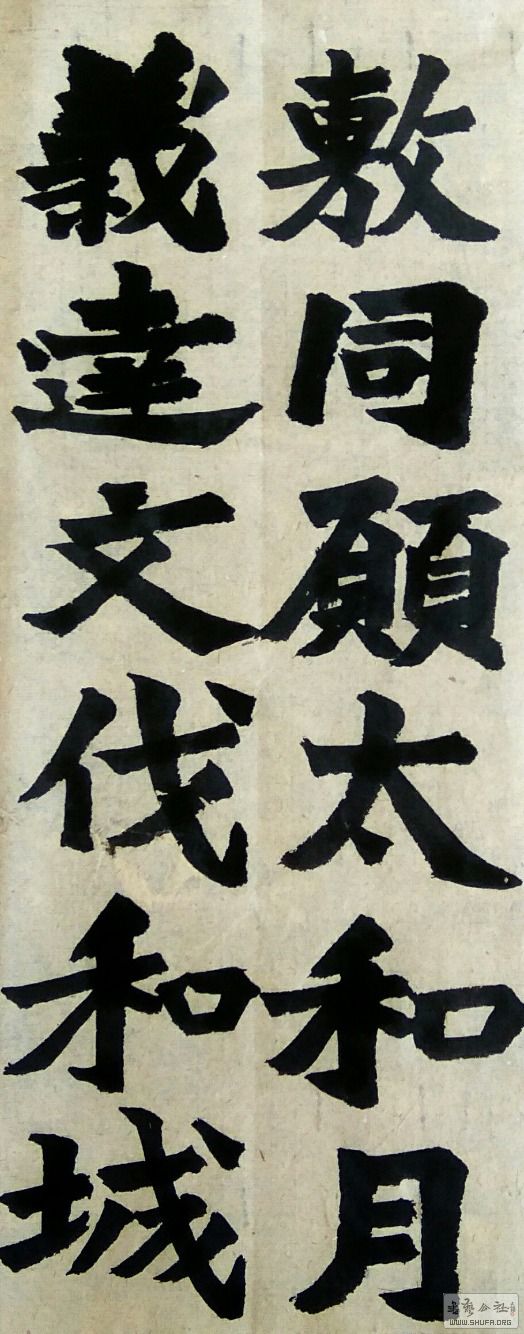 敷同願太和月
義達文伐和城
書藝公社
WWW.SHUFA.ORG